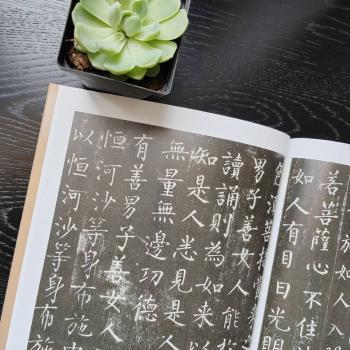 如人入
若菩薩心不住
如人有目日光明
色須菩提當
男子善女人能於
讀誦則為如來以
知是人悉見是人
無量無邊功德
有善男子善女人
恒河沙等身布施中
以恒河沙等身布施